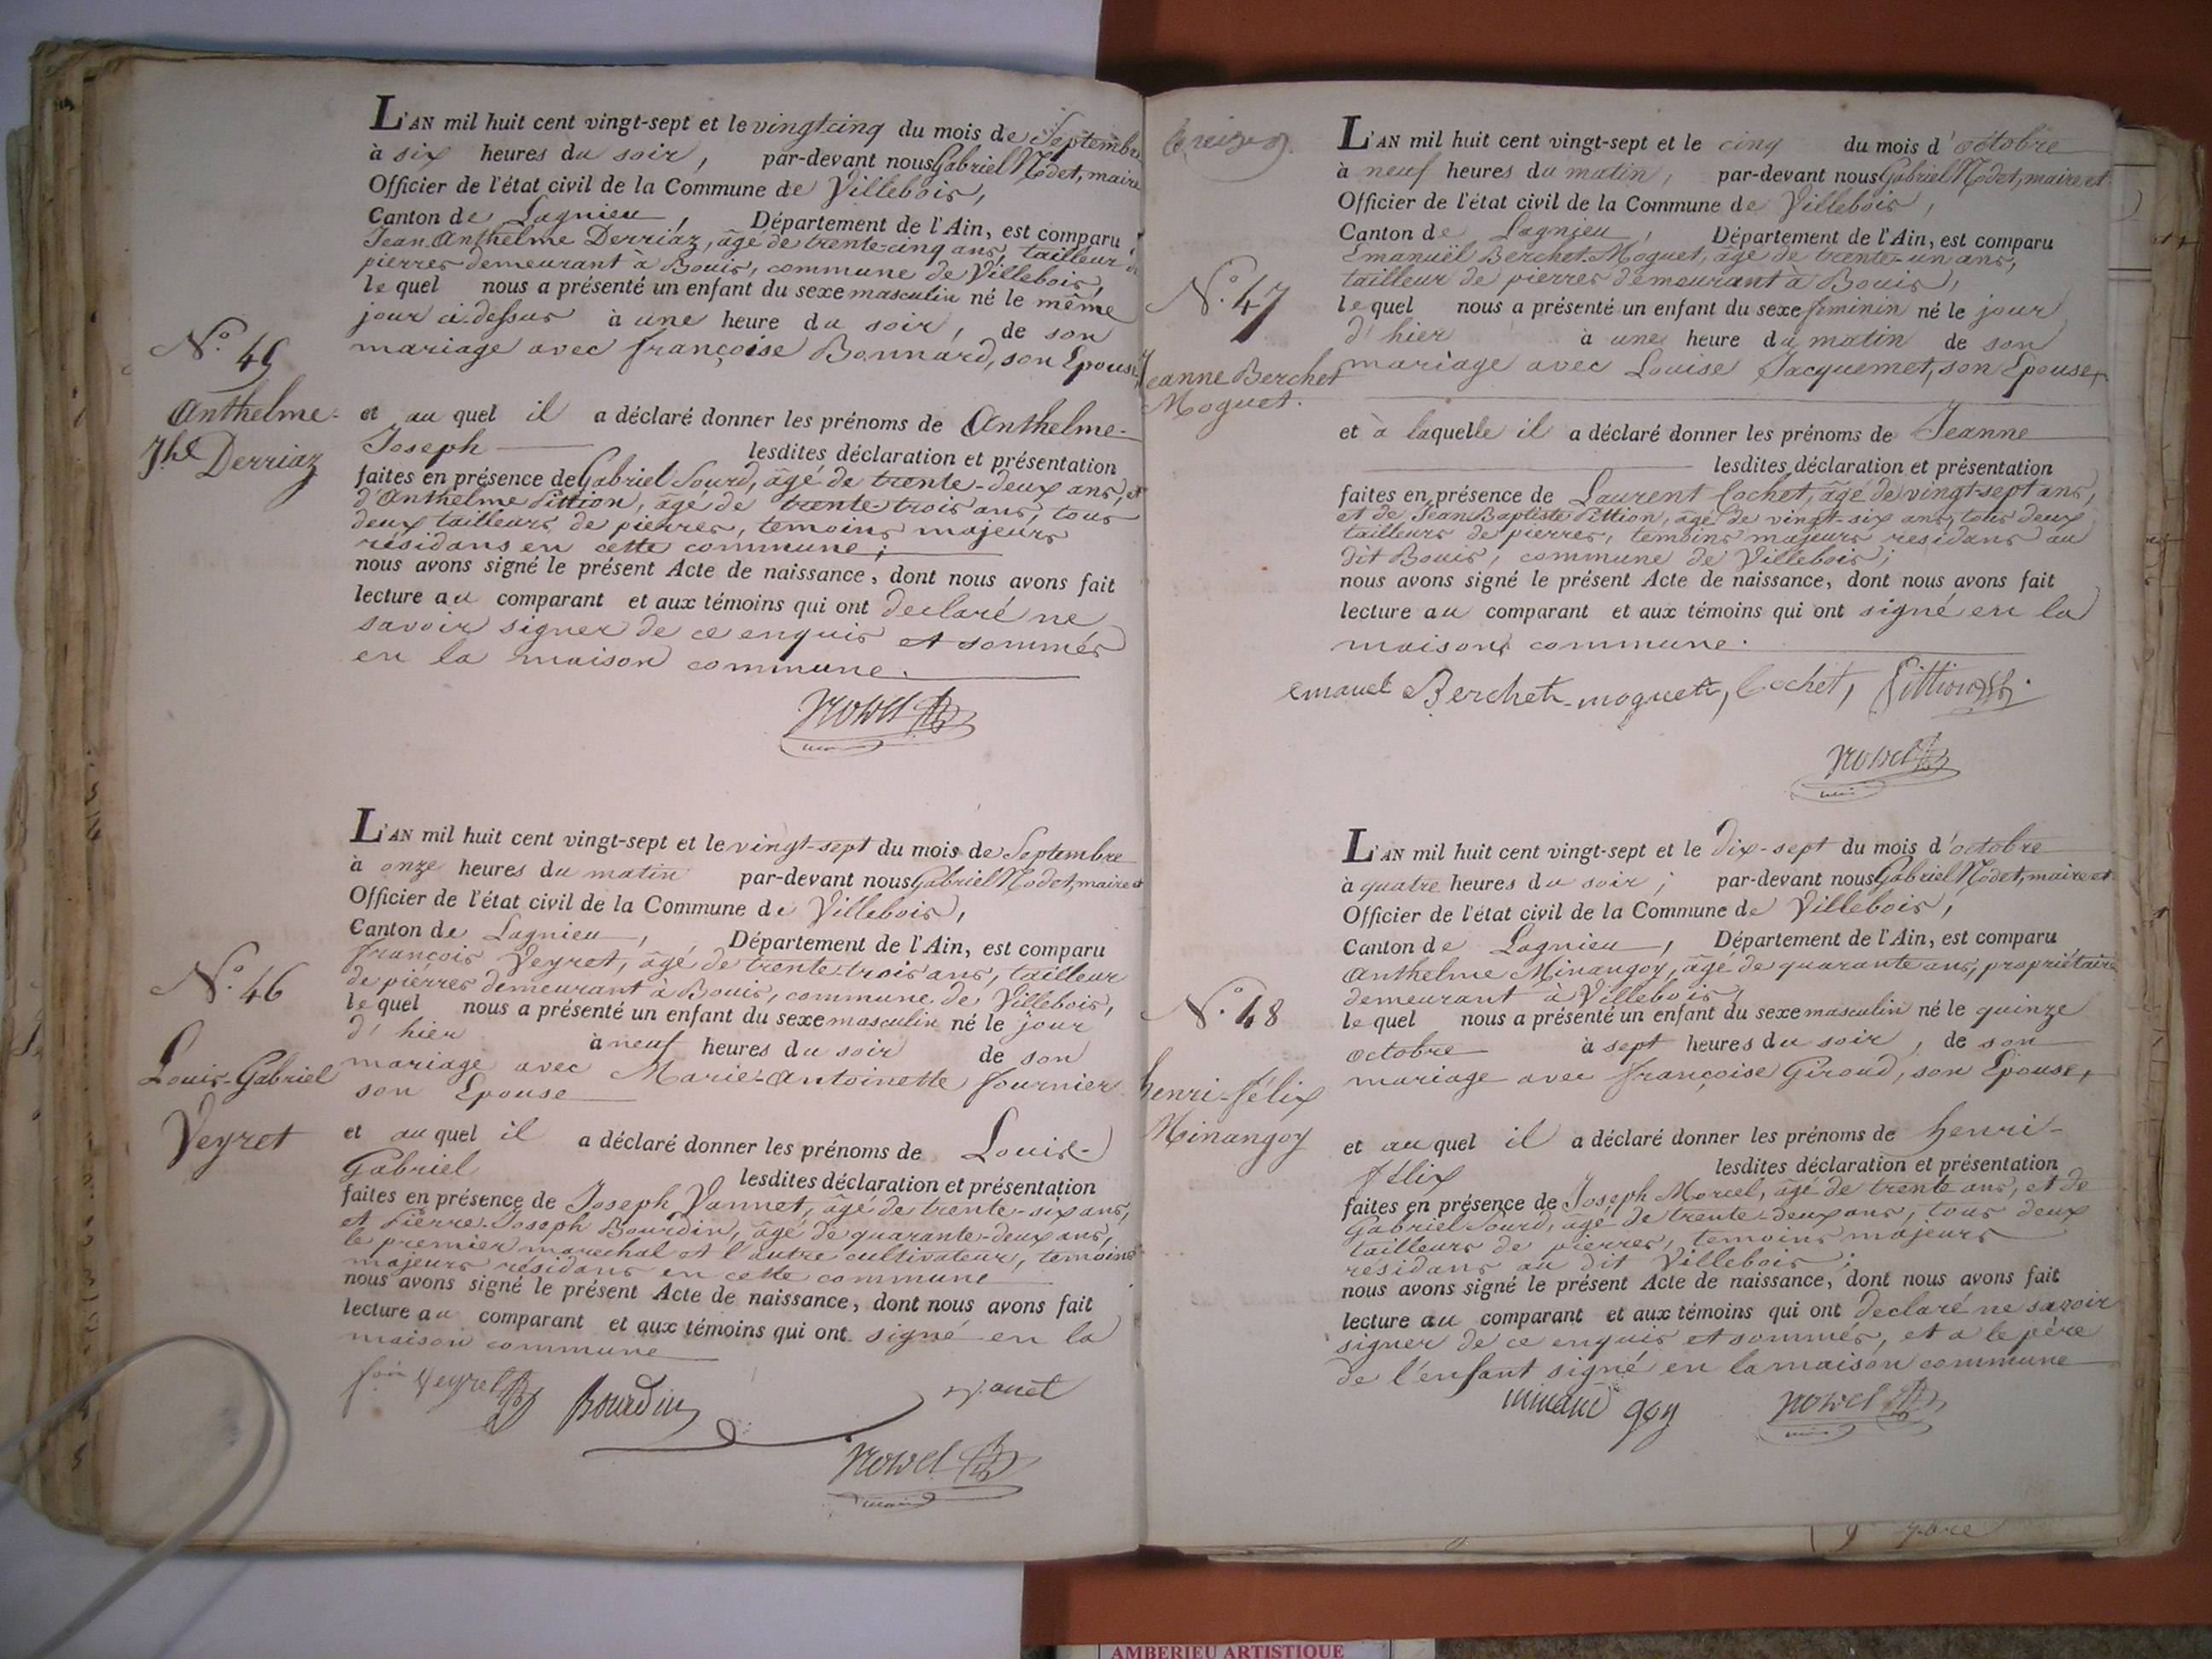 L'AN mil huit cent vingt-sept et le vingt cinq du mois de Septembre
à six heures du soir, par-devant nous Gabriel Nodet, maire
Officier de l'état civil de la Commune de Villebois,
Canton de Lagnieu, Département de l'Ain, est comparu
Jean Anthelme Derriaz, âgé de trente-cinq ans, tailleur de
pierres demeurant à Bouis, commune de Villebois,
lequel nous a présenté un enfant du sexe masculin né le même
jour ci-dessus à une heure du soir, de son
mariage avec françoise Bonnard, son Epouse,
N.º 45
Anthelme-
Jh Derriaz
et au quel il a déclaré donner les prénoms de Anthelme-
Joseph lesdites déclaration et présentation
faites en présence de Gabriel Sourd, âgé de trente-deux ans, et
d'Anthelme Pittion, âgé de trente-trois ans, tous
deux tailleurs de pierres, temoins majeurs
résidans en cette commune;
nous avons signé le présent Acte de naissance, dont nous avons fait
lecture au comparant et aux témoins qui ont declaré ne
savoir signer de ce enquis et sommés
en la maison commune.
L'AN mil huit cent vingt-sept et le vingt-sept du mois de Septembre
à onze heures du matin par-devant nous Gabriel Nodet, maire et
Officier de l'état civil de la Commune de Villebois,
Canton de Lagnieu, Département de l'Ain, est comparu
françois Veyret, âgé de trente-trois ans, tailleur
de pierres demeurant à Bouis, commune de Villebois,
lequel nous a présenté un enfant du sexe masculin né le jour
d'hier à neuf heures du soir de son
mariage avec Marie-Antoinette fournier
son Epouse
N.º 46
Louis-Gabriel
Veyret
et au quel il a déclaré donner les prénoms de Louis-
Gabriel lesdites déclaration et présentation
faites en présence de Joseph Vannet, âgé de trente-six ans,
et Pierre-Joseph Bourdin, âgé de quarante-deux ans,
le premier marechal et l'autre cultivateur, temoins
majeurs résidans en cette commune
nous avons signé le présent Acte de naissance, dont nous avons fait
lecture au comparant et aux témoins qui ont signé en la
maison commune
Veyret Bourdin
L'AN mil huit cent vingt-sept et le cinq du mois d'octobre
à neuf heures du matin, par-devant nous Gabriel Nodet, maire et
Officier de l'état civil de la Commune de Villebois,
Canton de Lagnieu, Département de l'Ain, est comparu
Emanuël Berchet-Moguet, âgé de trente-un ans,
tailleur de pierres demeurant à Bouis,
lequel nous a présenté un enfant du sexe féminin né le jour
d'hier à une heure du matin de son
mariage avec Louise Jacquemet, son Epouse,
N.º 47
Jeanne Berchet
Moguet.
et à laquelle il a déclaré donner les prénoms de Jeanne
lesdites déclaration et présentation
faites en présence de Laurent Cochet, âgé de vingt-sept ans,
et de Jean Baptiste Pittion, âgé de vingt-six ans, tous deux
tailleurs de pierres, temoins majeurs residans au
dit Bouis, commune de Villebois;
nous avons signé le présent Acte de naissance, dont nous avons fait
lecture au comparant et aux témoins qui ont signé en la
maison commune.
emanuel Berchet-moguet, Cochet, Pittion
L'AN mil huit cent vingt-sept et le dix-sept du mois d'octobre
à quatre heures du soir; par-devant nous Gabriel Nodet, maire et
Officier de l'état civil de la Commune de Villebois,
Canton de Lagnieu, Département de l'Ain, est comparu
Anthelme Minangoy, âgé de quarante ans, propriétaire
demeurant à Villebois,
lequel nous a présenté un enfant du sexe masculin né le quinze
octobre à sept heures du soir, de son
mariage avec françoise Giroud, son Epouse,
N.º 48
henri-félix
Minangoy
et au quel il a déclaré donner les prénoms de henri-
félix lesdites déclaration et présentation
faites en présence de Joseph Morcel, âgé de trente ans, et de
Gabriel Sourd, âgé de trente-deux ans, tous deux
tailleurs de pierres, temoins majeurs
residans au dit Villebois;
nous avons signé le présent Acte de naissance, dont nous avons fait
lecture au comparant et aux témoins qui ont declaré ne savoir
signer de ce enquis et sommés, et a le père
de l'enfant signé en la maison commune
minan goy
AMBERIEU ARTISTIQUE